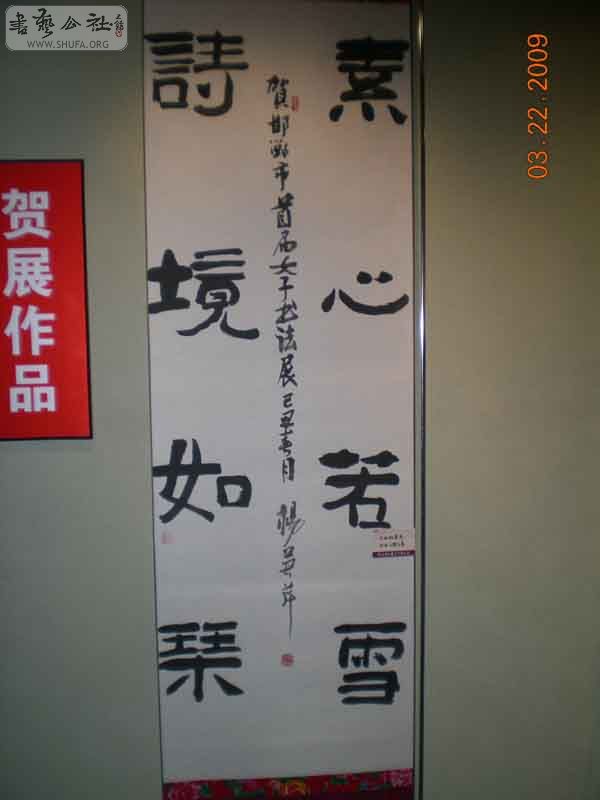 書藝公社
WWW.SHUFA.ORG
03.22.2009
贺展作品
素心若雪
詩境如琴
賀邯鄲市首届女子书法展己丑春月 楊英萍